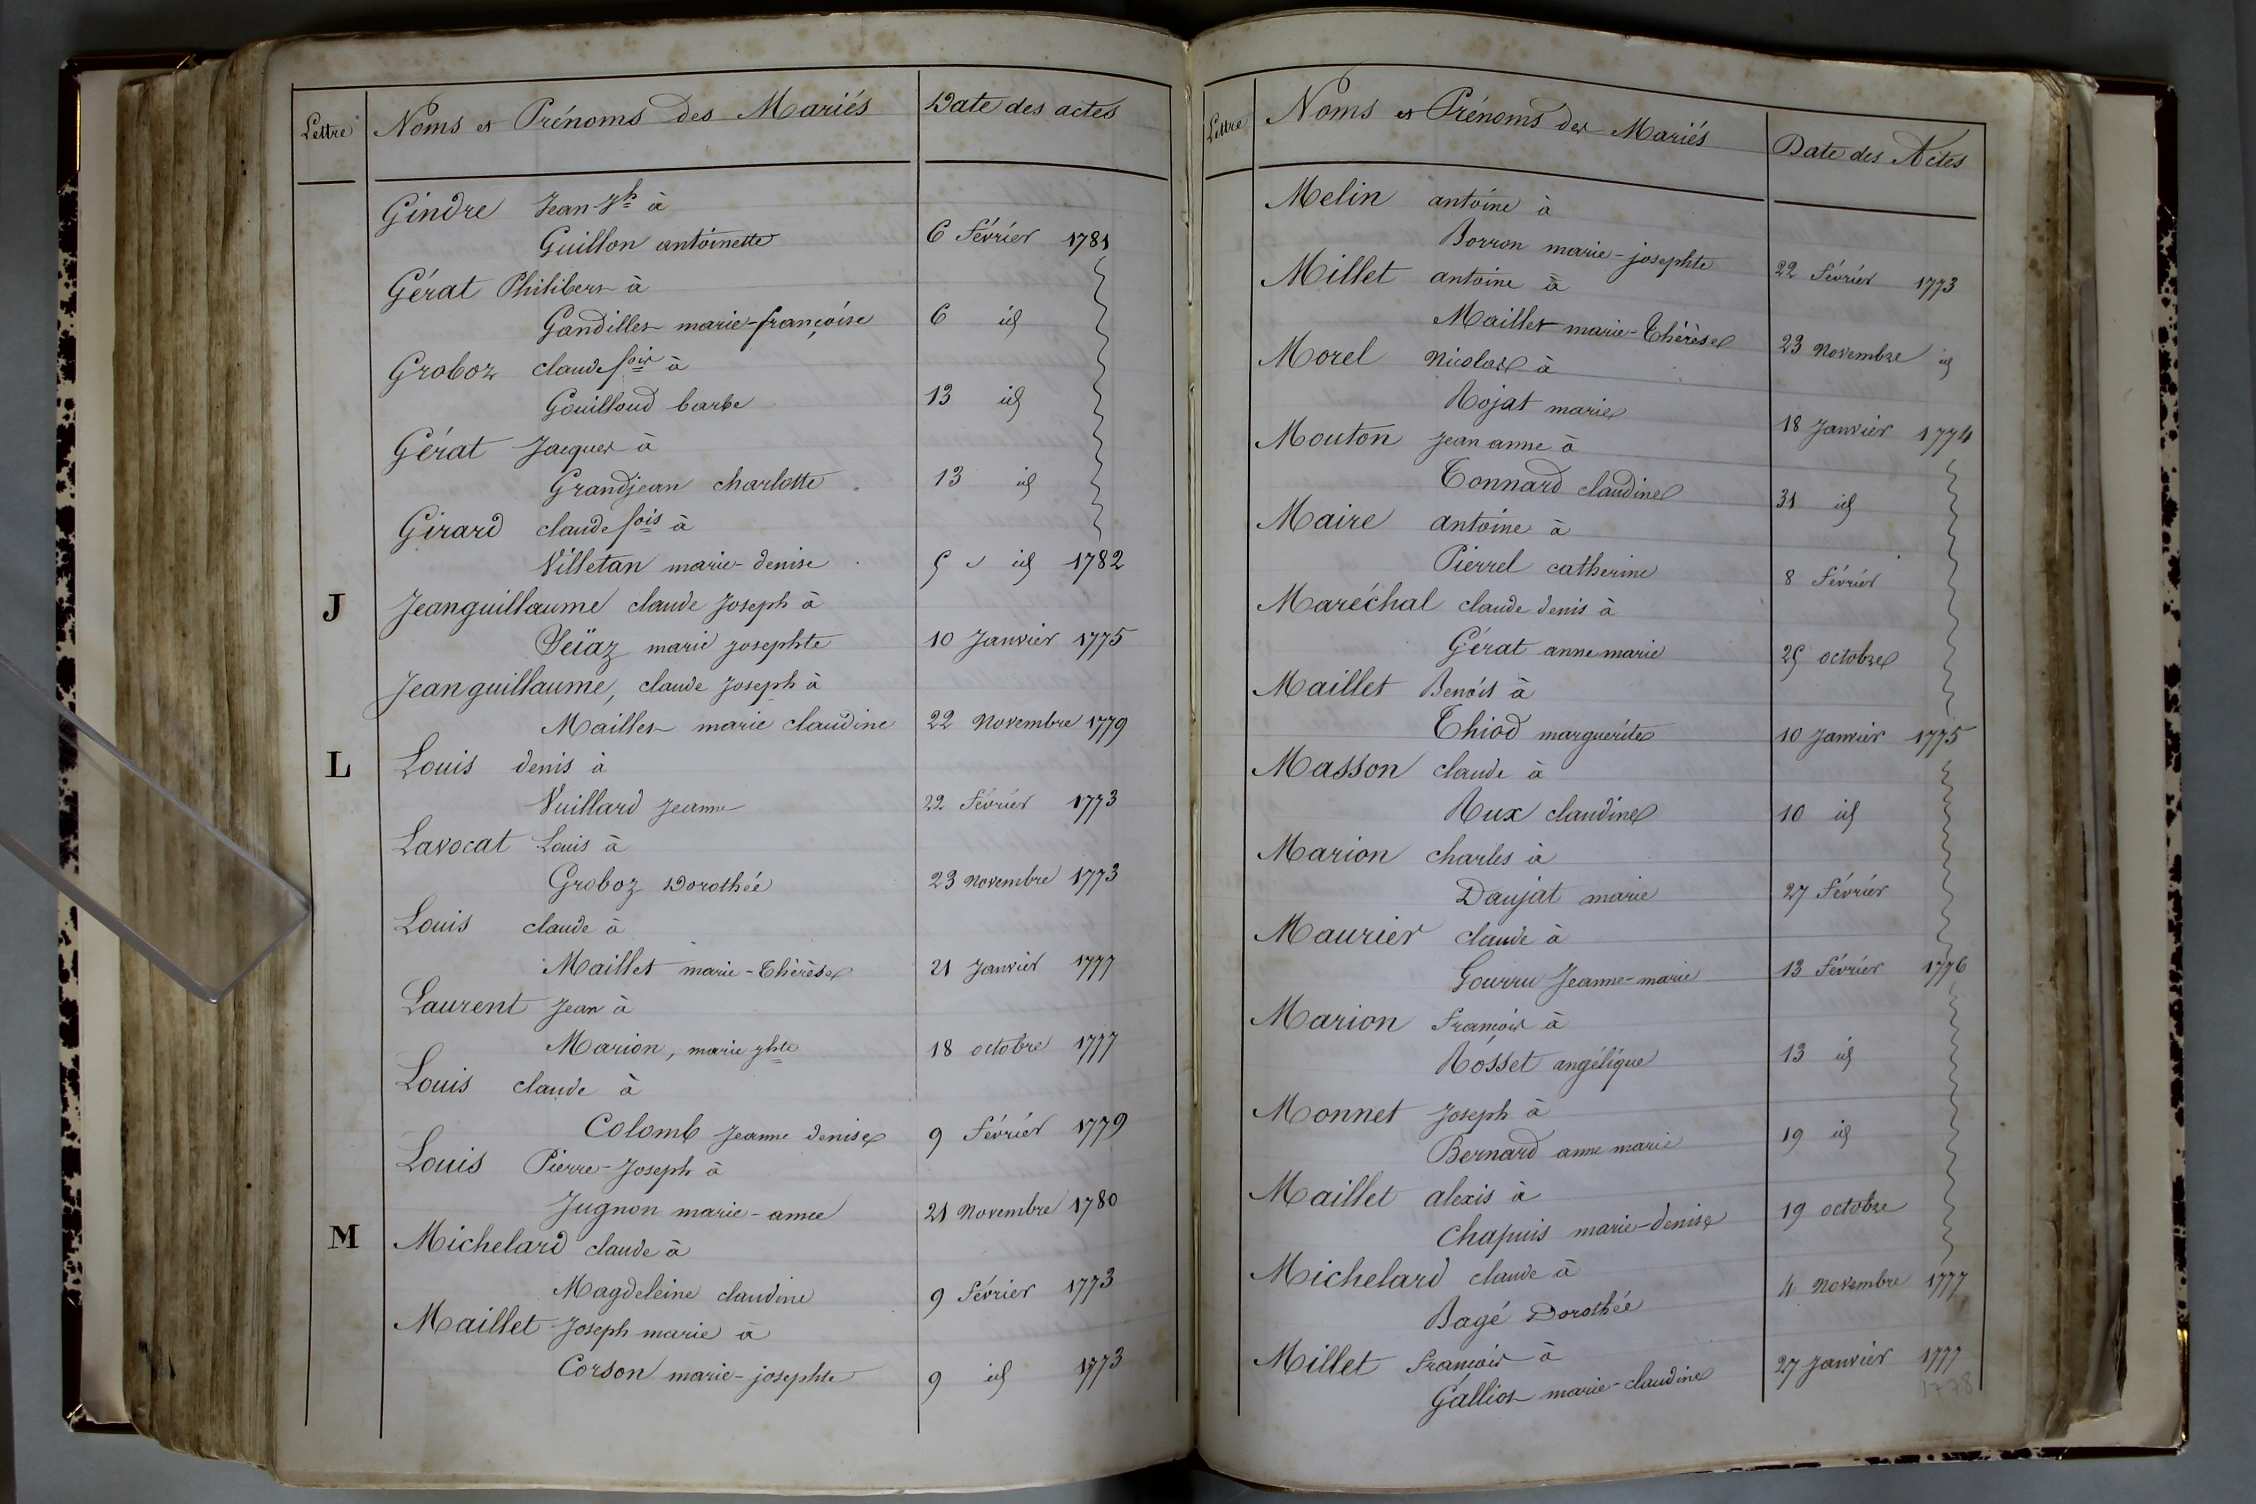 Lettre Noms et Prénoms des Mariés Date des actes
Gindre Jean-Jph à
Guillon antoinette 6 Février 1781
Gérat Philibert à
Gandillet marie-françoise 6 id
Groboz claude fois à
Gouilloud barbe 13 id
Gérat Jacques à
Grandjean charlotte 13 id
Girard claude fois à
Villetan marie-denise 5 id 1782
J Jeanguillaume claude Joseph à
Seïaz marie josephte 10 Janvier 1775
Jeanguillaume, claude Joseph à
Maillet marie claudine 22 Novembre 1779
L Louis denis à
Vuillard Jeanne 22 Février 1773
Lavocat Louis à
Groboz Dorothée 23 Novembre 1773
Louis claude à
Maillet marie-Thérèse 21 Janvier 1777
Laurent Jean à
Marion, marie jphte 18 octobre 1777
Louis claude à
Colomb Jeanne denise 9 Février 1779
Louis Pierre-Joseph à
Jugnon marie-anne 21 Novembre 1780
M Michelard claude à
Magdeleine claudine 9 Février 1773
Maillet Joseph marie à
Corson marie-josephte 9 id 1773
Lettre Noms et Prénoms des Mariés Date des Actes
Melin antoine à
Borron marie-josephte 22 Février 1773
Millet antoine à
Maillet marie-Thérèse 23 Novembre id
Morel Nicolas à
Rojat marie 18 Janvier 1774
Mouton Jean anne à
Tonnard claudine 31 id
Maire antoine à
Pierrel catherine 8 Février
Maréchal claude denis à
Gérat anne marie 25 octobre
Maillet Benoit à
Thiod marguerite 10 Janvier 1775
Masson claude à
Rux claudine 10 id
Marion charles à
Daujat marie 27 Février
Maurier claude à
Gourru Jeanne-marie 13 Février 1776
Marion François à
Rosset angélique 13 id
Monnet Joseph à
Bernard anne marie 19 id
Maillet alexis à
Chapuis marie-denise 19 octobre
Michelard claude à
Bagé Dorothée 4 Novembre 1777
Millet François à
Galliot marie-claudine 27 Janvier 1777
1778